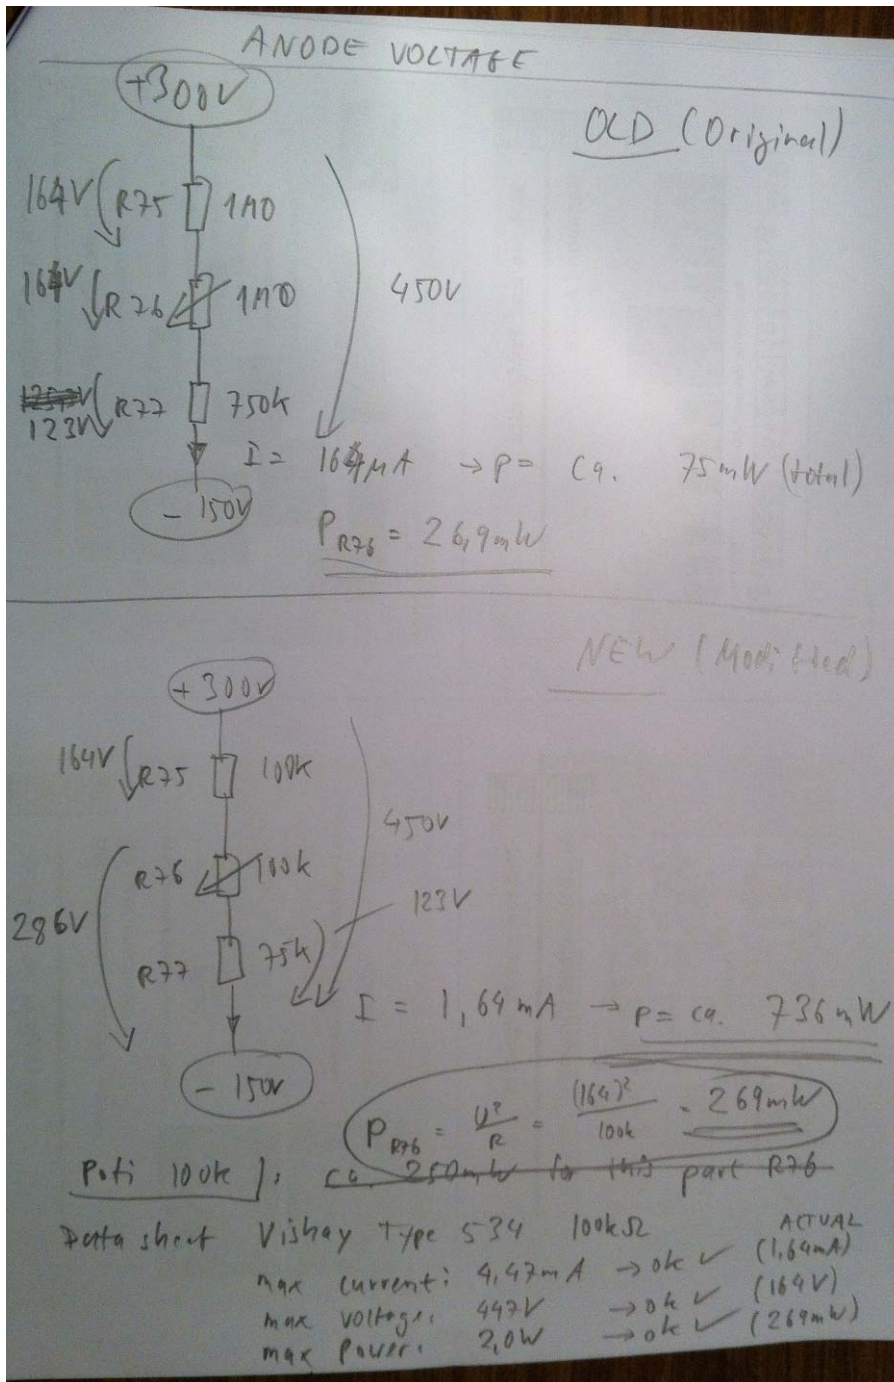 ANODE VOLTAGE
+300V
OLD (Original)
164V R75 1M0
164V R76 1M0
450V
R77 750k
123V
I = 164µA → P = ca. 75mW (total)
- 150V
P R76 = 26,9mW
NEW (Modified)
+300V
164V R75 100k
450V
R76 100k
123V
286V
R77 75k
I = 1,64mA → P = ca. 736mW
- 150V
P R76 = U²/R = (164)²/100k = 269mW
Poti 100k : ca. 250mW for this part R76
Datasheet Vishay Type 534 100kΩ ACTUAL
max current: 4,47mA → ok ✓ (1,64mA)
max voltage: 447V → ok ✓ (164V)
max Power: 2,0W → ok ✓ (269mW)